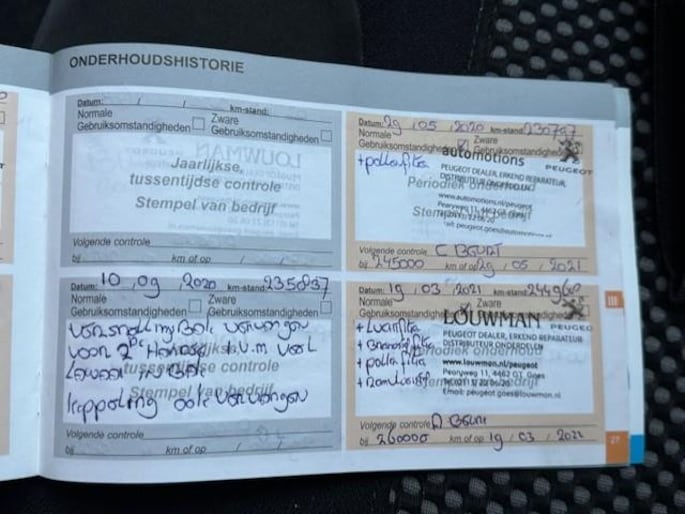 ONDERHOUDSHISTORIE
Datum: / / km-stand:
Normale Gebruiksomstandigheden
Zware Gebruiksomstandigheden
Jaarlijkse
tussentijdse controle
Stempel van bedrijf
Volgende controle
bij km of op / /
Datum: 29 / 05 / 2020 km-stand: 230797
Normale Gebruiksomstandigheden
Zware Gebruiksomstandigheden
+ pollenfilter
automotions
PEUGEOT
PEUGEOT DEALER, ERKEND REPARATEUR,
DISTRIBUTEUR ONDERDELEN
Periodiek onderhoud
www.automotions.nl/peugeot
Pearyweg 11, 4462 GT Goes
Stempel van bedrijf
Volgende controle C BEURT
bij 245000 km of op 29 / 05 / 2021
Datum: 10 / 09 / 2020 km-stand: 235837
Normale Gebruiksomstandigheden
Zware Gebruiksomstandigheden
Versnellingsbak vervangen
voor 2de Hands I.V.M veel
Lawaai in bak
koppeling ook vervangen
tussentijdse controle
Stempel van bedrijf
Volgende controle
bij km of op / /
Datum: 19 / 03 / 2021 km-stand:
Normale Gebruiksomstandigheden
Zware Gebruiksomstandigheden
+ Luchtfilter
+ Brandstoffilter
+ pollenfilter
+ Remvloeistof
LOUWMAN
PEUGEOT
PEUGEOT DEALER, ERKEND REPARATEUR
DISTRIBUTEUR ONDERDELEN
Periodiek onderhoud
www.louwman.nl/peugeot
Pearyweg 11, 4462 GT, Goes
Email: peugeot.goes@louwman.nl
Volgende controle A BEURT
bij 260000 km of op 19 / 03 / 2022
III
27